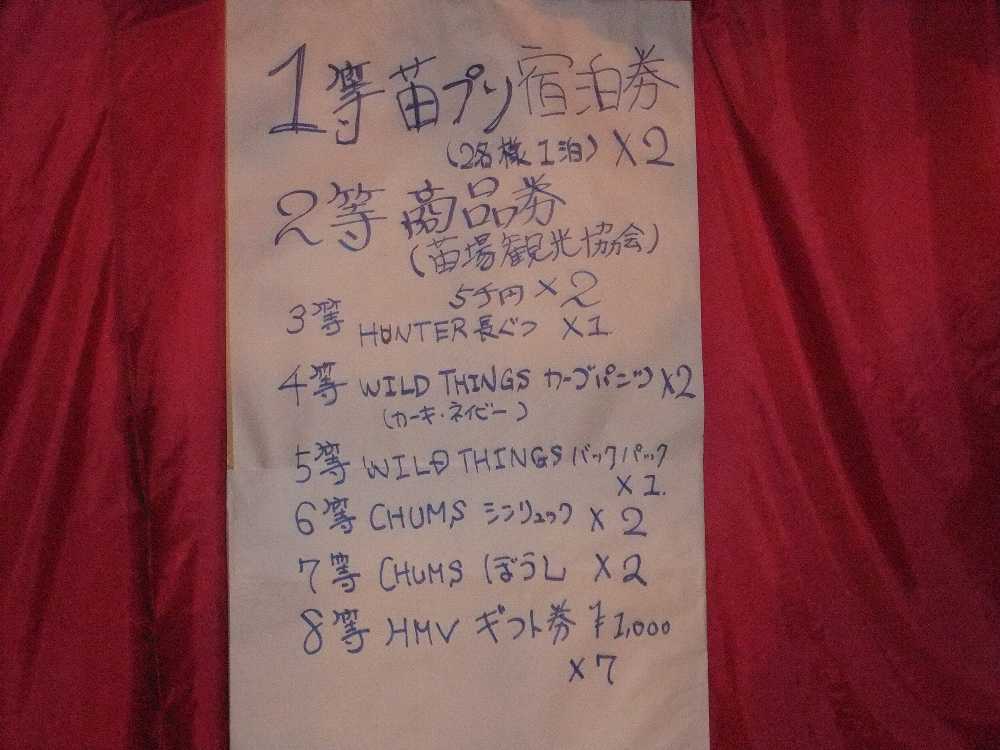 1等 苗プリ宿泊券
(2名様1泊) ×2
2等 商品券
(苗場観光協会)
5千円×2
3等 HUNTER長ぐつ ×1
4等 WILD THINGS カーゴパンツ×2
(カーキ・ネイビー)
5等 WILD THINGS バックパック
×1.
6等 CHUMS ミンリュック ×2
7等 CHUMS ぼうし ×2
8等 HMV ギフト券 ¥1,000
×7